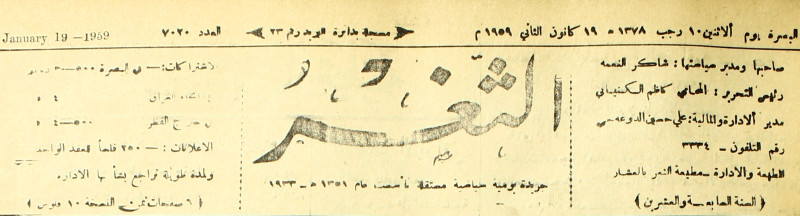 البصرة يوم ألاثنين ١٠ رجب ١٣٧٨ هـ ١٩ كانون الثاني ١٩٥٩ م
مسجلة بدائرة البريد رقم ٢٣
العدد ٧٠٢٠
January 19 -1959
صاحبها ومدير سياستها: شاكر النعمه
رئيس التحرير: المحامي كاظم
مدير ألادارة والمالية: علي حسين
رقم التلفون - ٣٣٤
الطبعة والادارة - مطبعة الثغر بالعشار
( السنة السابعة والعشرين )
الثغر
جريدة يومية سياسية مستقلة تأسست عام ١٣٥١ هـ - ١٩٣٣
الاشتراكات:— في البصرة
العراق
خارج القطر
الاعلانات: — ٢٥٠ فلساً العقد الواحد
ولمدة طويلة تراجع بشأنها الادارة
( ٦ صفحات ثمن النسخة ١٠ فلوس )